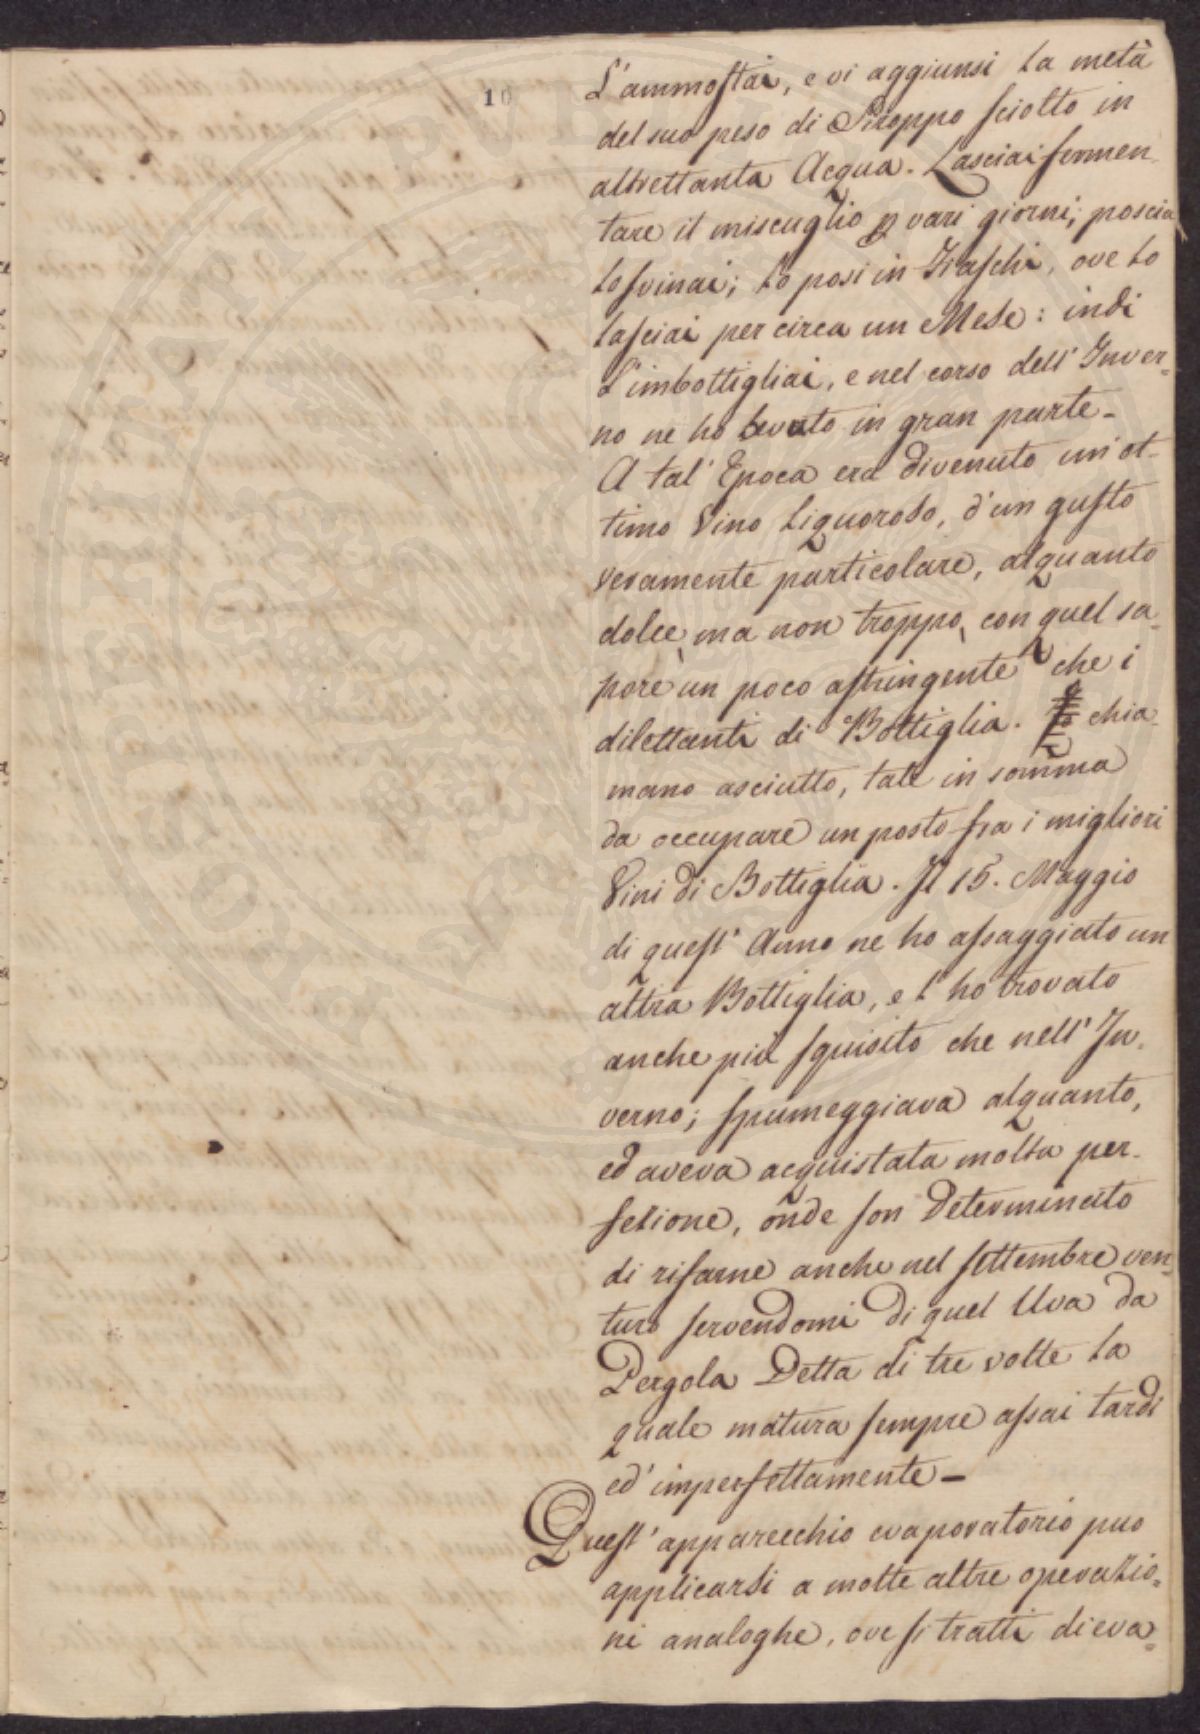 10
L'ammostai, e vi aggiunsi la metà
del suo peso di Siroppo sciolto in
altrettanta Acqua. Lasciai fermen-
tare il miscuglio p vari giorni; poscia
lo svinai; lo posi in Fiaschi, ove lo
lasciai per circa un Mese: indi
L'imbottigliai, e nel corso dell' Inver=
no ne ho bevuto in gran parte-
A tal' Epoca era divenuto un'ot-
timo Vino Liquoroso, d'un gusto
veramente particolare, alquanto
dolce, ma non troppo, con quel sa-
pore un poco astringente che i
dilettanti di Bottiglia. chia-
mano asciutto, tale in somma
da occupare un posto fra i migliori
Vini di Bottiglia. Il 15. Maggio
di quest' Anno ne ho assaggiato un
altra Bottiglia, e l' ho trovato
anche più squisito che nell' In-
verno; spumeggiava alquanto,
ed aveva acquistata molta per-
fezione, onde son determinato
di rifarne anche nel settembre ven=
turo servendomi di quel Uva da
Pergola Detta di tre volte la
quale matura sempre assai tardi
ed' imperfettamente-
Quest' apparecchio evaporatorio puo
applicarsi a molte altre operazio=
ni analoghe, ove si tratti di eva=